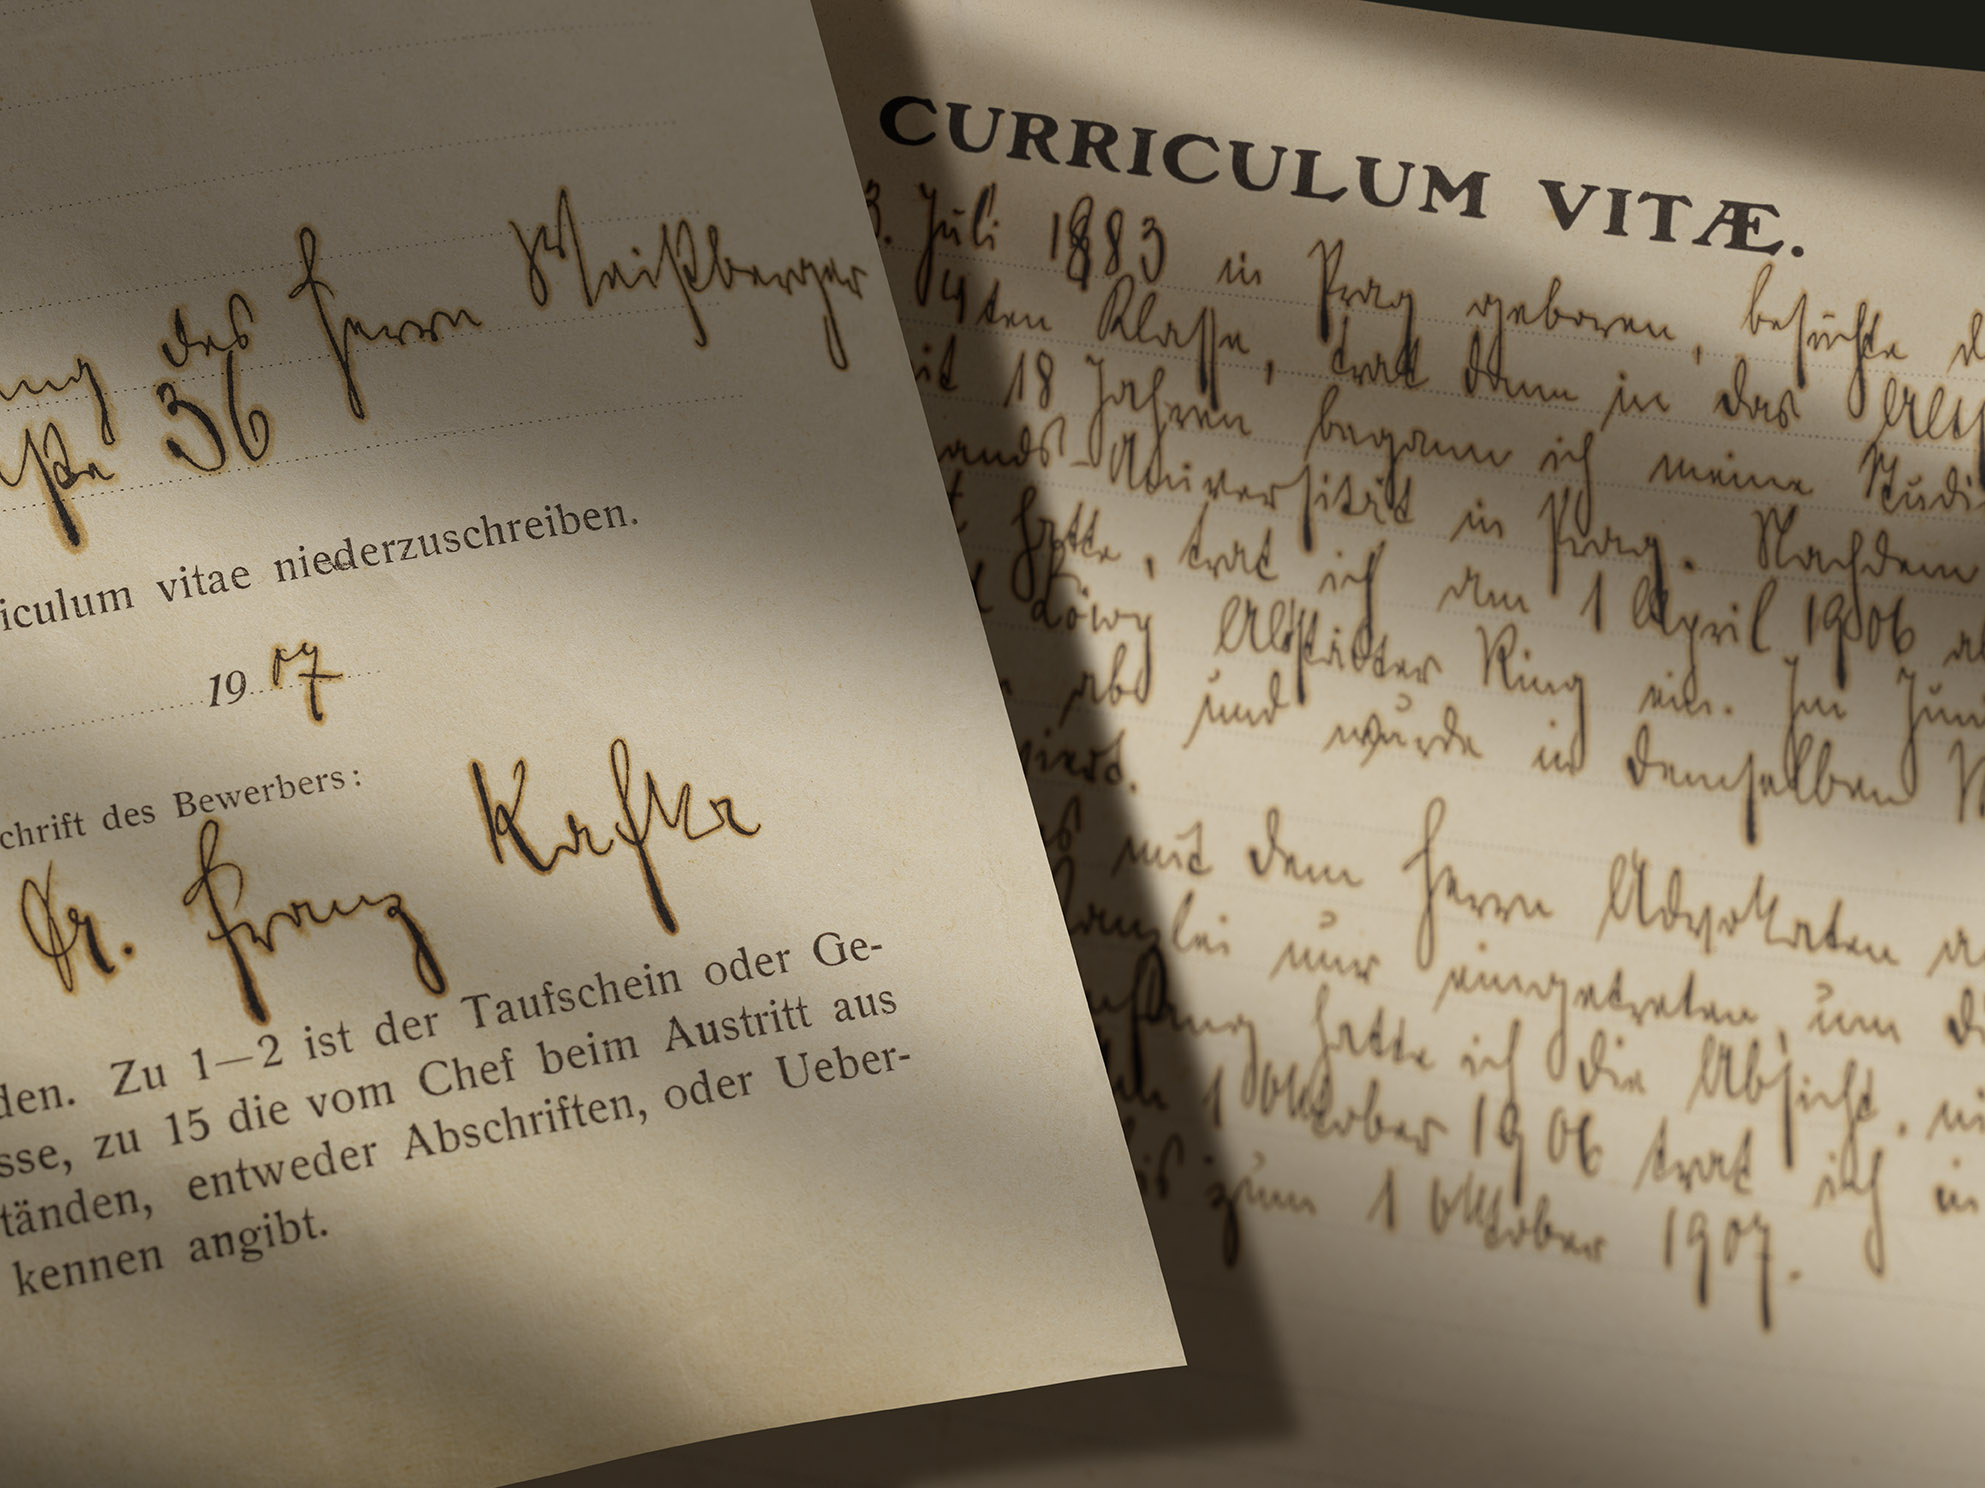 des Herrn Weißberger
36
vitae niederzuschreiben.
1907
des Bewerbers:
Dr. Franz Kafka
Zu 1—2 ist der Taufschein oder Ge-
zu 15 die vom Chef beim Austritt aus
entweder Abschriften, oder Ueber-
kennen angibt.
CURRICULUM VITÆ.
3. Juli 1883 in Prag geboren, besuchte
4ten Klasse, trat dann in das
18 Jahren begann ich meine
Universität in Prag. Nachdem
hatte, trat ich am 1 April 1906
Löwy Altstädter Ring ein. Im
ab und wurde in demselben
mit dem Herrn Advokaten
nur eingetreten, um
hatte ich die Absicht,
1 Oktober 1906 trat ich in
zum 1 Oktober 1907.